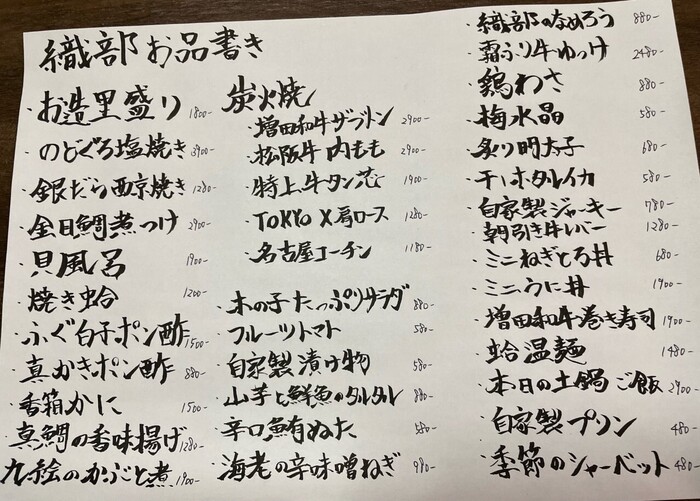 織部お品書き
・お造里盛り 1800-
・のどぐろ塩焼き 3900-
・銀だら西京焼き 1280-
・金目鯛煮つけ 2900-
・貝風呂 1900-
・焼き蛤 1200-
・ふぐ白子ポン酢 1500-
・真かきポン酢 880-
・香箱かに 1500-
・真鯛の香味揚げ 1280-
・九絵のかぶと煮 1900-
炭火焼
・増田和牛ザブトン 2900-
・松阪牛内もも 2900-
・特上牛タン芯 1900-
・TOKYO X肩ロース 1280-
・名古屋コーチン 1180-
・木の子たっぷりサラダ 880-
・フルーツトマト 580-
・自家製漬け物 580-
・山芋と鮮魚のタルタル 880-
・辛口鮪ぬた 580-
・海老の辛味噌ねぎ 980-
・織部のなめろう 880-
・霜ふり牛ゆっけ 2480-
・鶏わさ 880-
・梅水晶 580-
・炙り明太子 680-
・干しホタルイカ 580-
・自家製ジャーキー 780-
・朝引き牛レバー 1280-
・ミニねぎとろ丼 680-
・ミニうに丼 1900-
・増田和牛巻き寿司 1900-
・蛤温麺 1480-
・本日の土鍋ご飯 2900-
・自家製プリン 480-
・季節のシャーベット 480-